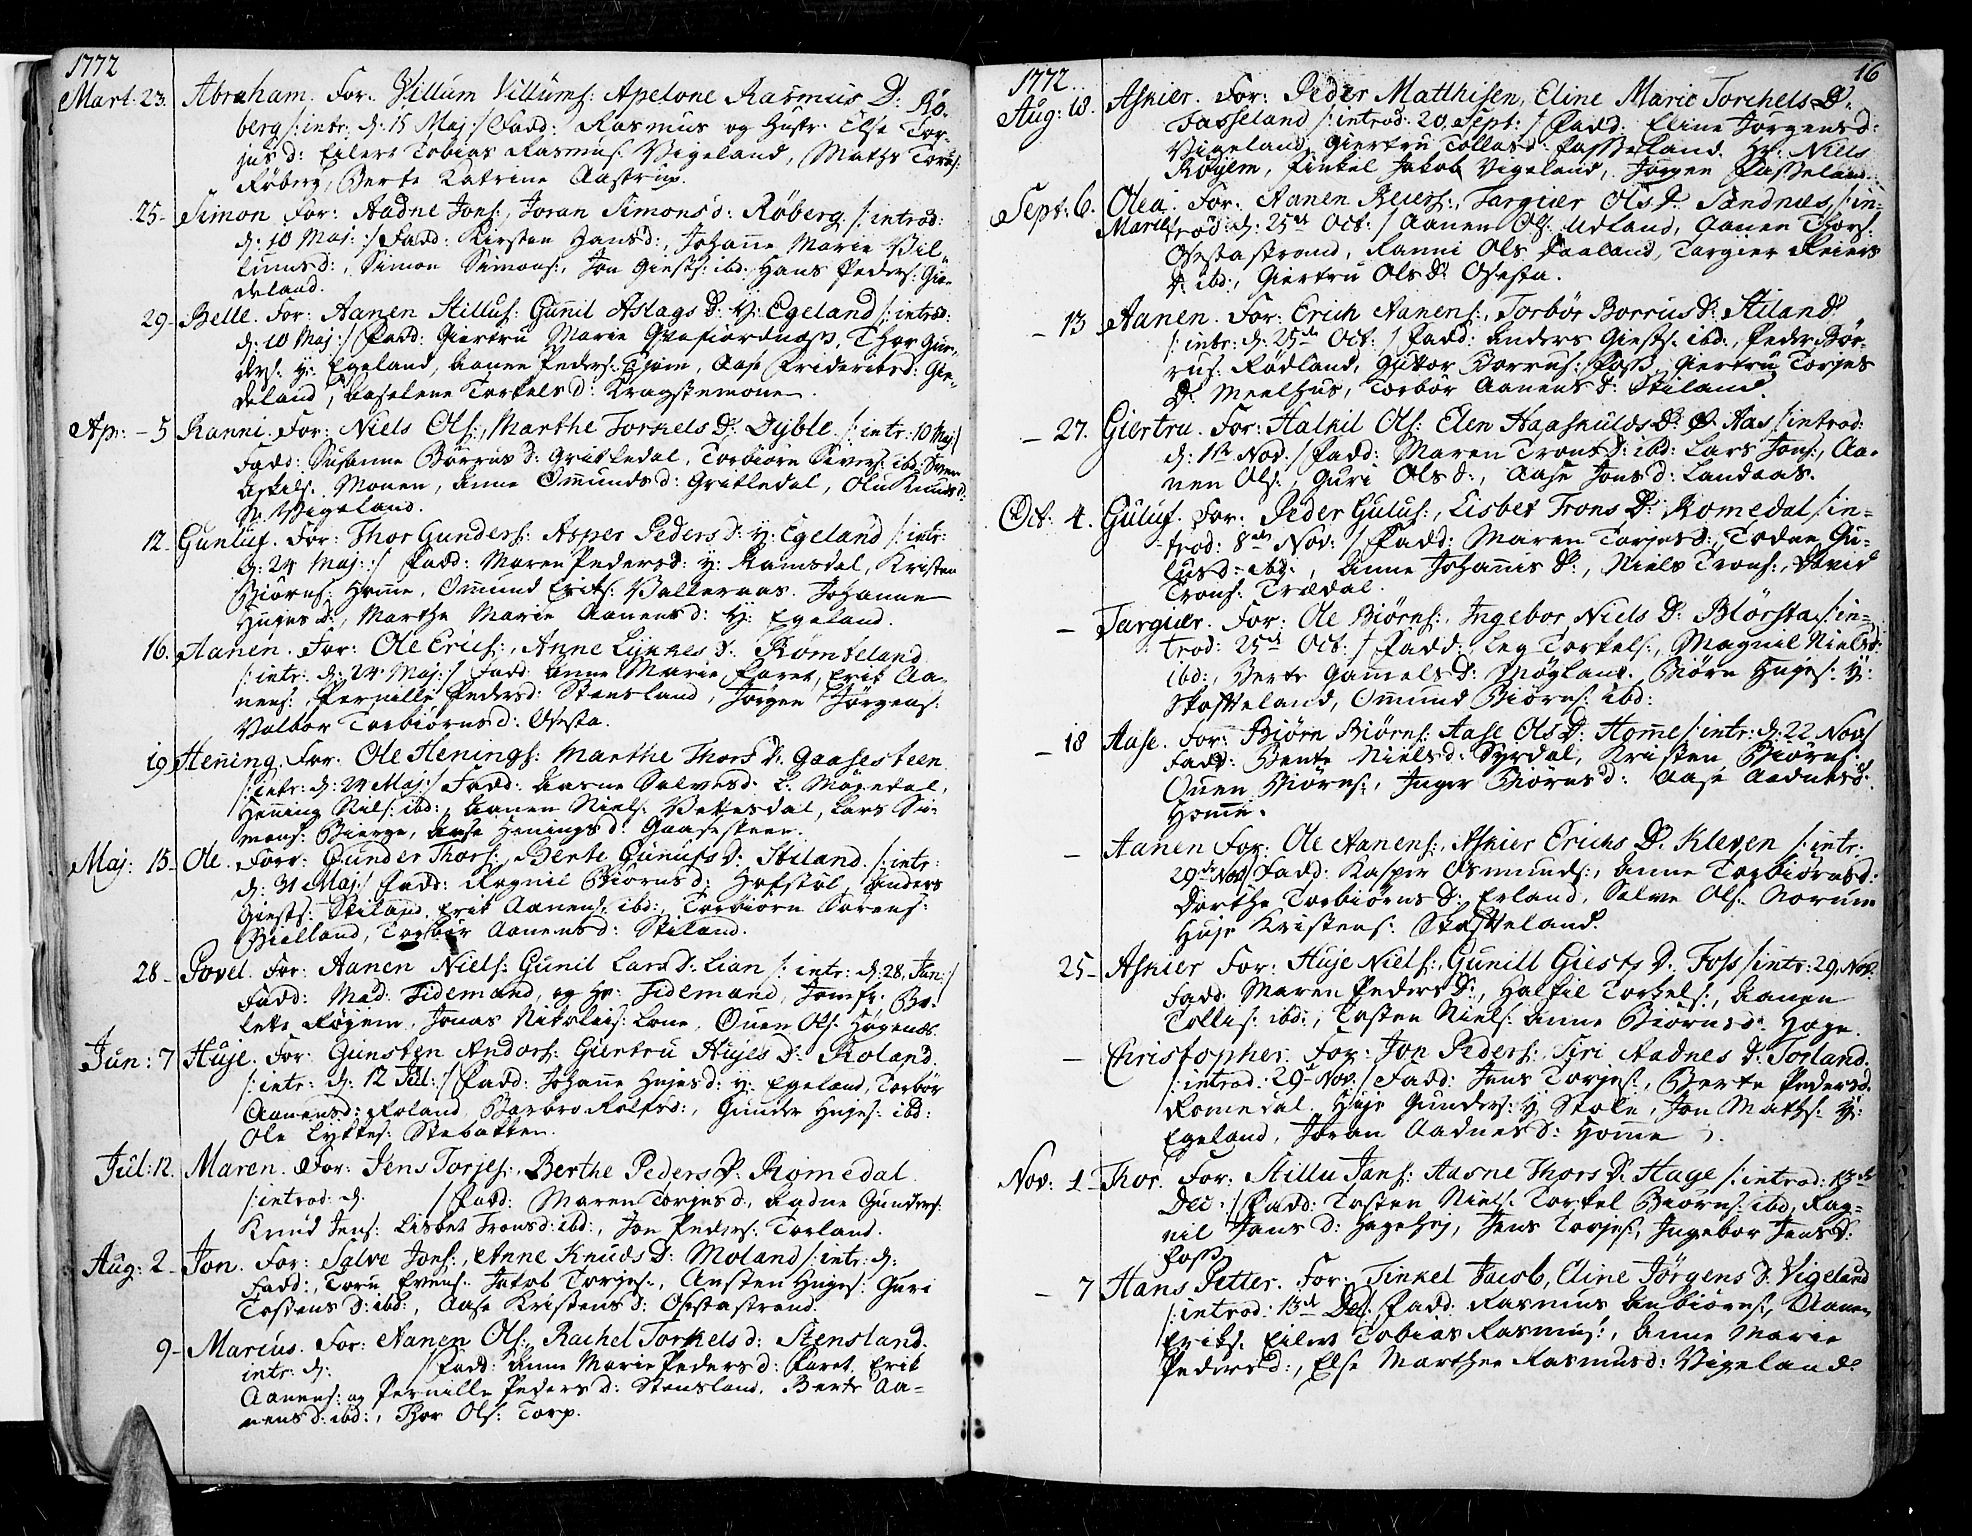 1772
Mart. 23. Abraham. For. Villum Villums: Apelone Rasmus D: Rø-
berg /: intr: d: 15 Maj :/ Fadd: Rasmus og Hustr. Else Tor-
jus d: Eilert Tobias Rasmus: Vigeland, Maths Tors:
Røberg, Berte Katrine Aastrup.
25- Simon For: Aadne Jons:, Joran Simons d: Røberg /: introd:
d: 10 Maj: :/ Fadd: Kirsten Hansd:, Johanne Marie Vil-
lumsd:, Simon Simons:, Jon Giests: ibd. Hans Peders: Gie-
deland.
29- Belle. For: Aanen Stillus: Gunil Aslags D: Y: Egeland /: introd:
d: 10 Maj :/ Fadd: Giertru Marie Thor Gun-
ders: y: Egeland, Aanen Peders: Aase Friderichsd: Gie-
deland, Aaselene Torkelsd: Kragstemonen.
Ap: - 5 Ranni. For: Niels Ols:, Marthe Torkels D: Dyble /: intr: 10 Maj :/
Fadd: Susanne Børrus d: Gritledal, Torbiørn Sivers: ibd: Sven
Askils: Monen, Anne Omunds d: Gritledal, Olu Knuds d:
Vigeland.
12- Gunluf. For: Thor Gunders: Asper Peders d: Y: Egeland /: intr:
d: 24 Maj: :/ Fadd: Maren Pedersd: y: Ramsdal, Kristen
Biørns: Home, Omund Erits: Valleraas. Johanne
Hujes d:, Marthe Marie Aanensd: Y: Egeland.
16. Aanen. For: Ole Erics:, Anne Lykkes D: Rømteland
/: intr: d: 24 Maj: :/ Fadd: Anne Marie Faret, Erik Aa-
nens: Pernille Pedersd: Stensland, Jørgen Jørgens:
Valbor Torbiørnsd: Osesta.
19 Hening. For: Ole Henings: Marthe Thors D: Gaasesteen
/: intr: d: 24 Maj: :/ Fadd: Aasne Salvesd: L: Møgedal,
Hening Nils: ibd:, Aanen Niels: Vettesdal, Lars Si-
mons: Bierge, Aase Henings d: Gaasesteen.
Maj: 15- Ole. Forr: Gunder Thors:, Berte Gunufs D: Stiland. /: intr:
d: 31 Maj :/ Fadd: Ragnil Biørns d: Hofstøl, Anders
Giests: Skiland, Erik Aanens: ibd:, Torbiørn Sørens:
Bielland, Torbør Aanensd: Skiland.
28- Povel. For: Aanen Niels: Gunil Lars d: Lian /: intr: d: 28, Jun: :/
Fadd: Mad: Tidemand, og Hr: Tidemand, Jomfr: Bo-
lette Røjem, Jonas Nikolais: Lone, Ouen Ols: Høgenes.
Jun: 7 Huje. For: Gunsten Andors: Giertru Hujes D: Roland.
/: intr: d: 12 Jul: :/ Fadd: Johane Hujesd: y: Egeland, Torbør
Aanensd: Roland, Barbro Rolfsd:, Gunder Hujes: ibd:
Ole Lyktes: Stebakken.
Jul: 12. Maren. For: Jens Torjes:, Berthe Peders D: Romedal.
/: introd: d. :/ Fadd: Maren Torjes d:, Aadne Gunders:
Knud Jens: Lisbet Tronsd: ibd:, Jon Peders: Torland.
Aug: 2- Jon. For: Salve Jons:, Anne Knuds D: Moland /: intr: d:
Fadd:, Toru Evens: Jakob Torjes:, Austen Hujes: Guri
Tostens d: ibd:, Aase Kristens d: Osestastrand.
9- Marcus. For: Aanen Ols:, Rachel Torkels d: Stensland.
intr: d: :/ Fadd: Anne Marie Peders d: Faret. Erik
Aanens: og Pernille Peders d: Stensland, Berte Aa-
nensd: ibd:, Thor Ols: Torp.
16
1772.
Aug: 10. Askier. For: Peder Matthisen, Eline Marie Torchels D:
Fasseland /: introd: 20 Sept: :/ Fadd: Eline Jørgensd:
Vigeland, Giertru Tollas d: Fasseland. Hr: Niels
Røyem, Finkel Jakob Vigeland, Jørgen Fasseland.
Sept: 6. Olea For: Aanen Reiers:, Targier Ols D: Sandnes /: in-
Marie trod: d: 25de Oct: :/ Aanen Ols: Udland, Aanen Thors:
Osestastrand, Ranni Ols Faaland, Targier Reiers
D: ibd:, Giertru Ols D: Osesta.
- 13 Aanen. For: Erich Aanens:, Torbør Borrus D: Stiland
/: intr: d: 25de Oct: :/ Fadd: Anders Giests: ibd:, Peder Bør-
rus: Rødland, Guttor Børrus: Foss, Giertru Torjes
D: Meelhus, Torbør Aanens d: Skiland.
- 27. Giertru. For: Halkil Ols: Elen Haaskulds D: Ø. Aas /: introd:
d: 1ste Nov: :/ Fadd: Maren Trons D: ibd: Lars Jons:, Aa-
nen Ols:, Guri Ols D:, Aase Jons d: Landaas.
Oct: 4. Guluf. For: Peder Gulus:, Lisbet Trons D: Romedal /: in-
trod: 8de Nov: :/ Fadd: Maren Torjesd:, Todne Gu-
lusd: ibd:, Anne Johannis D:, Niels Trons:, David
Trons: Trædal.
- Targier. For: Ole Biørns:, Ingebor Niels D: Blørsta /: in-
trod: 25de Oct: :/ Fadd: Leg Torkels:, Magnil Nielsd:
ibd:, Berte Gamels D: Møgland. Biørn Hujes: Y:
Skofteland, Omund Biørns: ibd:
- 18 Aase. For: Biørn Biørns: Aase Ols D: Home /: intr: d: 22 Nov :/
Fadd: Bente Nielsd: Syrdal, Kristen Biørns:
Ouen Biørns:, Inger Biørns d: Aase Aadnesd:
Home.
- Aanen For: Ole Aanens:, Askier Erichs D: Kleven /: intr:
29de Nov :/ Fadd: Kasper Osmunds:, Anne Torbiørnsd:
Dorthe Torbiørns D: Erland, Salve Ols: Norum
Huje Kristens: Skofteland.
25- Askier For: Huje Niels:, Gunill Giests D: Foss /: intr: 29. Nov:
Fadd. Maren Peders D:, Halkil Torkels:, Aanen
Tollis: ibd:, Tosten Niels: Anne Biørnsd: Hage.
- Christopher. For: Jon Peders:, Siri Aadnes d: Torland.
/: introd: 29de Nov: :/ Fadd: Jens Torjes:, Berte Pedersd:
Romedal. Huje Gunders: Y Stole, Jon Maths: Y:
Egeland, Joran Aadnes D: Home :/.
Nov: 1- Thor. For: Stillu Jans: Aasne Thors D: Hage /: introd: 13de
Dec :/ Fadd: Tosten Niels: Torkel Biørns: ibd, Rag-
nil Jans d: Hagehej, Jens Torjes:, Ingebor Jens D:
Foss.
- 7 Hans Petter. For: Finkel Jacob, Eline Jørgens D: Vigeland
/: introd: 13de Dec: :/ Fadd: Rasmus Anbiørns:, Aanen
Erits: Eilert Tobias Rasmus:, Anne Marie
Pedersd:, Else Marthee Rasmusd: Vigeland: